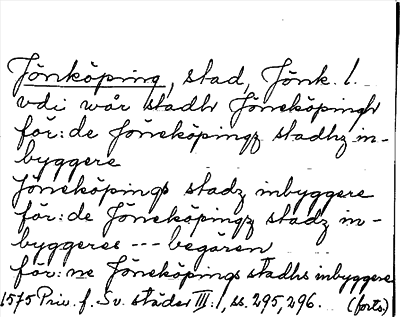 Jönköping, stad, Jönk. l.
vdi wår stadh Jöneköpingh
för:de Jöneköpingz stadhz in-
byggere
Jöneköpings stadz inbyggere
för:de Jöneköpingz stadz in-
byggeres --- begären
för:ne Jöneköpings stadhs inbyggere
1575 Priv. f. Sv. städer III:, ss. 295, 296. (forts.)